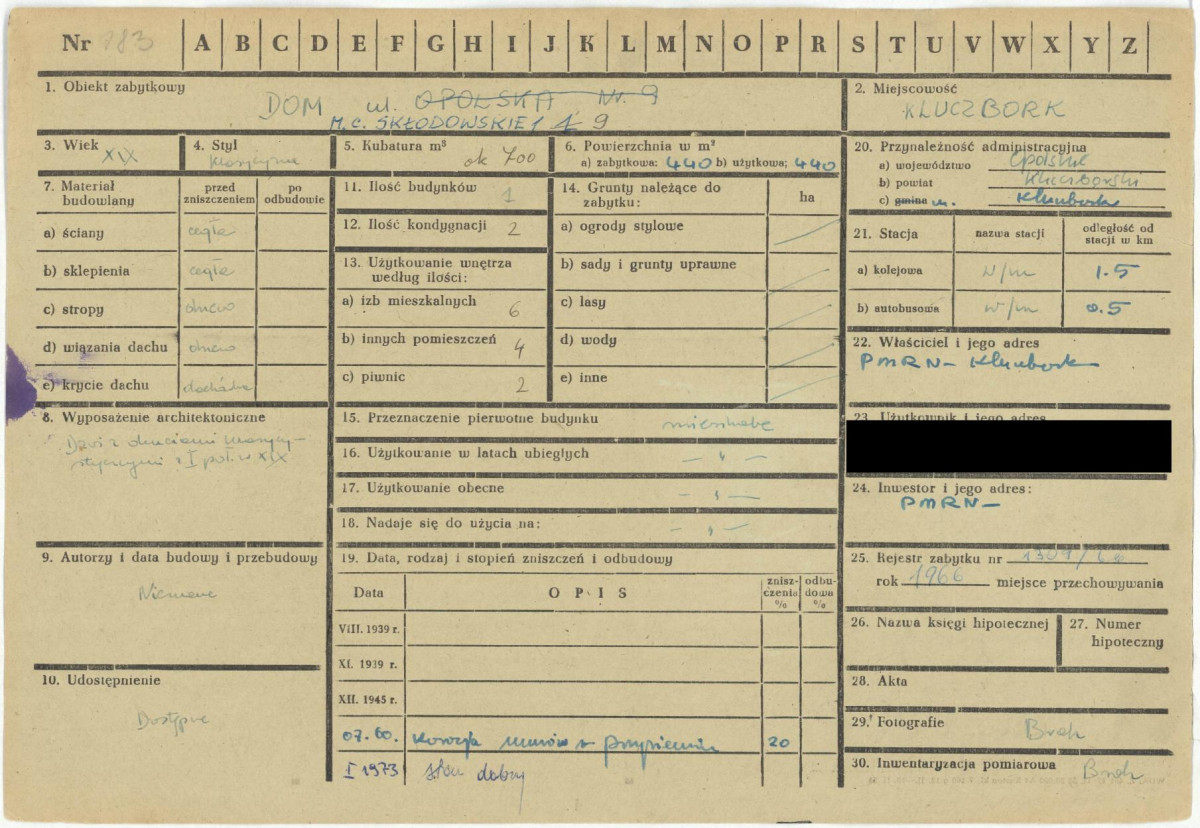 Nr 183 A B C D E F G H I J K L M N O P R S T U V W X Y Z
1. Obiekt zabytkowy
DOM ul. OPOLSKA Nr. 9
M. C. SKŁODOWSKIEJ 9
2. Miejscowość
KLUCZBORK
3. Wiek
XIX
4. Styl
klasycyzm
5. Kubatura m³
ok 700
6. Powierzchnia w m²
a) zabytkowa: 440 b) użytkowa: 440
20. Przynależność administracyjna
a) województwo Opolskie
b) powiat Kluczborski
c) gmina m. Kluczbork
7. Materiał budowlany
przed zniszczeniem
po odbudowie
a) ściany cegła
b) sklepienia cegła
c) stropy drewno
d) wiązania dachu drewno
e) krycie dachu dachówka
11. Ilość budynków 1
12. Ilość kondygnacji 2
13. Użytkowanie wnętrza
według ilości:
a) izb mieszkalnych 6
b) innych pomieszczeń 4
c) piwnic 2
14. Grunty należące do
zabytku:
ha
a) ogrody stylowe
b) sady i grunty uprawne
c) lasy
d) wody
e) inne
21. Stacja
nazwa stacji
odległość od
stacji w km
a) kolejowa w/m 1.5
b) autobusowa w/m 0.5
22. Właściciel i jego adres
PMRN – Kluczbork
8. Wyposażenie architektoniczne
Drzwi z okuciami klasycy-
stycznymi z I poł. w XIX
15. Przeznaczenie pierwotne budynku
mieszkalne
16. Użytkowanie w latach ubiegłych
– " –
17. Użytkowanie obecne
– " –
18. Nadaje się do użycia na:
– " –
23. Użytkownik i jego adres
24. Inwestor i jego adres:
PMRN –
9. Autorzy i data budowy i przebudowy
Nieznane
19. Data, rodzaj i stopień zniszczeń i odbudowy
Data
OPIS
znisz-
czenia
%
odbu-
dowa
%
VIII. 1939 r.
XI. 1939 r.
XII. 1945 r.
07.60. Korozja murów w przyziemiu 20
I 1973 stan dobry
25. Rejestr zabytku nr 1309/66
rok 1966 miejsce przechowywania
26. Nazwa księgi hipotecznej
27. Numer
hipoteczny
10. Udostępnienie
Dostępne
28. Akta
29. Fotografie
Brak
30. Inwentaryzacja pomiarowa
Brak